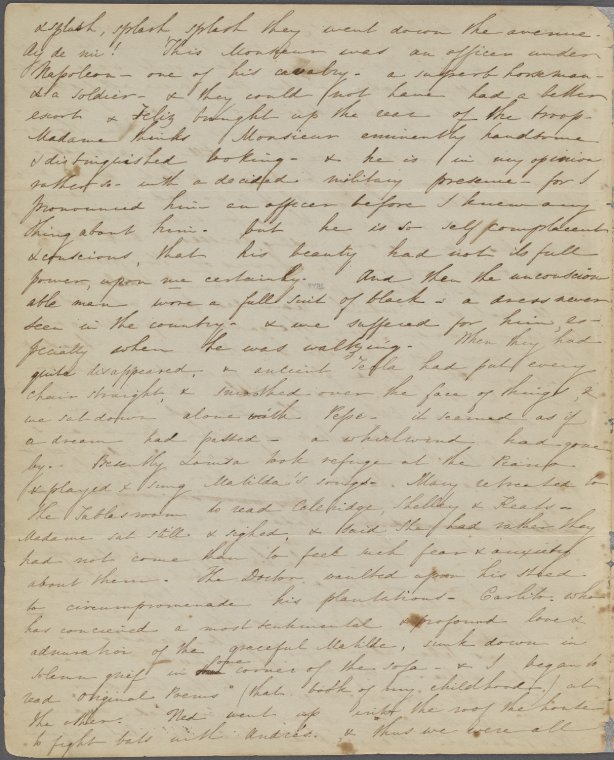 & splash, splash splash they went down the avenue.
Ay de mi! This Monsieur was an officer under
Napoleon - one of his cavalry - a superb horseman -
& a soldier - & they could not have had a better
escort & Feliz brought up the rear of the troop -
Madame thinks Monsieur eminently handsome
& distinguished looking - & he is in my opinion
rather so - with a decided military presence - for I
pronounced him an officer before I knew any
thing about him - but he is so self complacent
& conscious, that his beauty had not its full
power, upon me certainly. And then the unconscion
able man wore a full suit of black - a dress never
seen in the country - & we suffered for him, es-
pecially when he was waltzing. When they had
quite disappeared, & ancient Tecla had put every
chair straight, & smoothed over the face of things, &
we sat down alone with Pepe - it seemed as if
a dream had passed - a whirlwind had gone
by. Presently Louisa took refuge at the Piano
& played & sung Matilda's songs. Mary retreated to
the Tablesroom to read Coleridge, Shelley & Keats -
Madame sat still & sighed, & said she had rather they
had not come than to feel such fear & anxiety
about them. The Doctor vaulted upon his steed
to circumpromenade his plantations - Carlito, who
has conceived a most sentimental & profound love &
adoration of the graceful Matilde, sunk down in
solemn grief in one corner of the sofa - & I began to
read "Original Poems" (that book of my childhood) at
the other. Ned went up into the roof of the house
to fight bats with Andres. & thus we were all